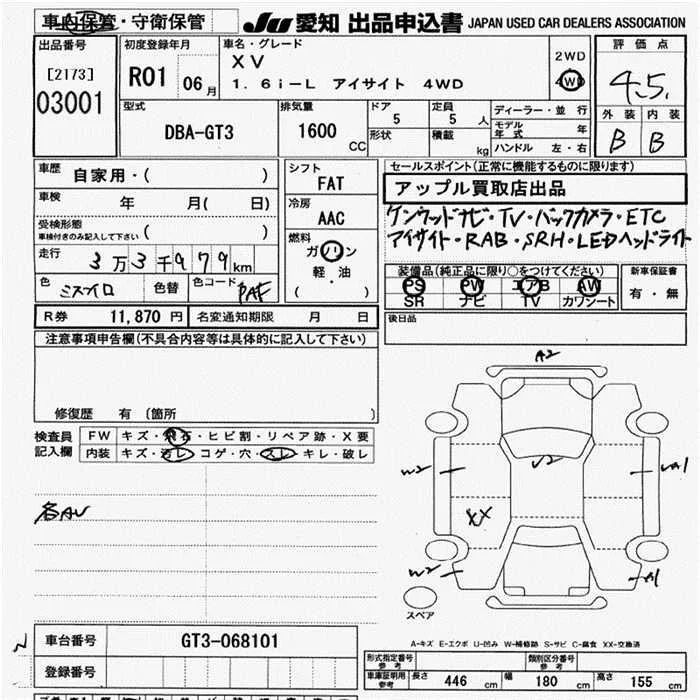 車内保管・守衛保管
JU 愛知 出品申込書 JAPAN USED CAR DEALERS ASSOCIATION
出品番号
[2173]
03001
初度登録年月
R01 06月
車名・グレード
XV
1.6i-L アイサイト 4WD
2WD
4WD
評価点
4.5.
外装 内装
B B
型式
DBA-GT3
排気量
1600
CC
ドア
5
定員
5 人
形状
積載
kg
ディーラー・並行
モデル年式 年
ハンドル 左・右
車歴
自家用・( )
車検 年 月( 日)
受検形態
車検付きのみ記入して下さい ( )
走行 3万3千979km
色 ミズイロ 色替 色コード PAF
シフト
FAT
冷房
AAC
燃料
ガソリン
軽・油
( )
セールスポイント(正常に機能するものに限ります)
アップル買取店出品
ケンウッドナビ・TV・バックカメラ・ETC
アイサイト・RAB・SRH・LEDヘッドライト
装備品(純正品に限り○をつけてください)
PS PW エアB AW
SR ナビ TV カワシート
新車保証書
有・無
R券 11,870 円 名変通知期限 月 日
後日品
注意事項申告欄(不具合内容等は具体的に記入して下さい)
修復歴 有 〔箇所 〕
検査員
記入欄
FW キズ・飛石・ヒビ割・リペア跡・X要
内装 キズ・汚レ・コゲ・穴・スレ・キレ・破レ
各AU
A2
W2
U2
UA1
XX
W2
A1
スペア
A-キズ E-エクボ U-凹み W-補修跡 S-サビ C-腐食 XX-交換済
車台番号 GT3-068101
登録番号
形式指定番号
参考
類別区分番号
参考
車庫証明用
参考
長さ 446 cm 幅 180 cm 高さ 155 cm